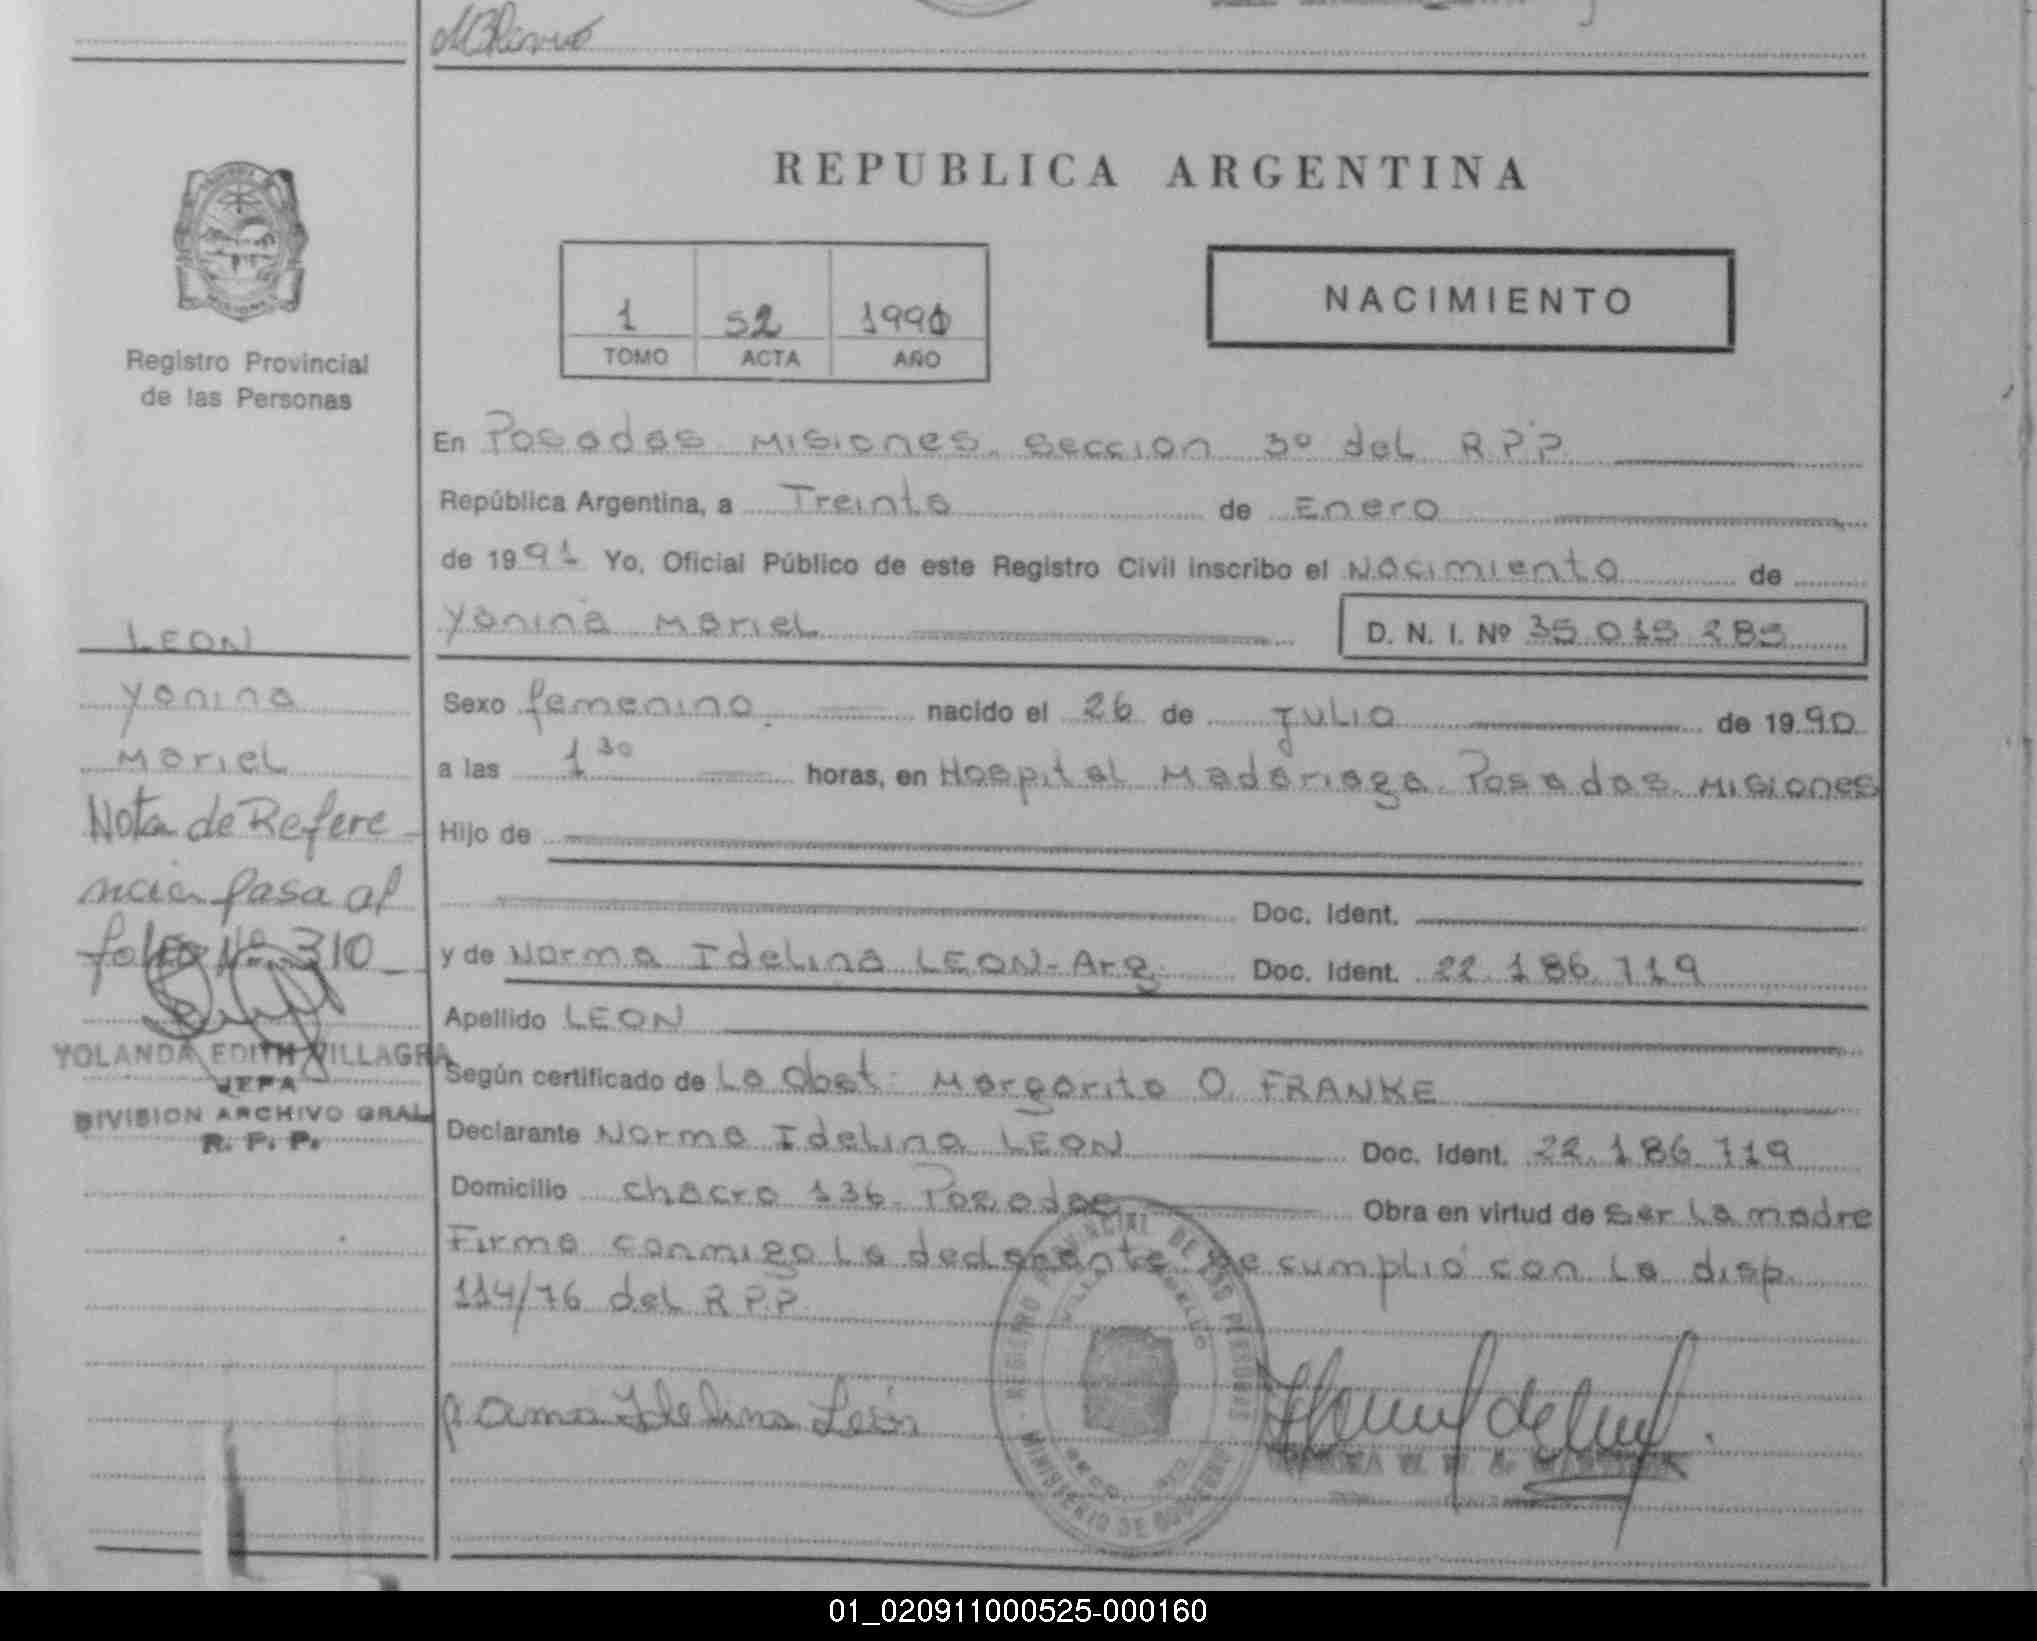 REPUBLICA ARGENTINA
1 52 1991
TOMO ACTA AÑO
NACIMIENTO
Registro Provincial
de las Personas
En Posadas Misiones. Seccion 3º del R.P.P.
República Argentina, a Treinta de Enero
de 1991 Yo, Oficial Público de este Registro Civil inscribo el Nacimiento de
Yanina Mariel D. N. I. Nº 35.015.285
Sexo femenino. nacido el 26 de Julio de 1990
a las 1 30 horas, en Hospital Madariaga. Posadas. Misiones
Hijo de
Doc. Ident.
y de Norma Idelina LEON-Arg. Doc. Ident. 22.186.719
Apellido LEON
Según certificado de La Obst. Margarita O. FRANKE
Declarante Norma Idelina LEON Doc. Ident. 22.186.719
Domicilio chacra 136. Posadas Obra en virtud de ser la madre
Firma conmigo la declarante. Se cumplió con la disp.
114/76 del R.P.P.
LEON
Yanina
Mariel
Nota de Refere
ncia pasa al
folio Nº 310
YOLANDA EDITH VILLAGRA
JEFA
DIVISION ARCHIVO GRAL
R. P. P.
Idelina León
REGISTRO PROVINCIAL DE LAS PERSONAS
MINISTERIO DE GOBIERNO
01_020911000525-000160